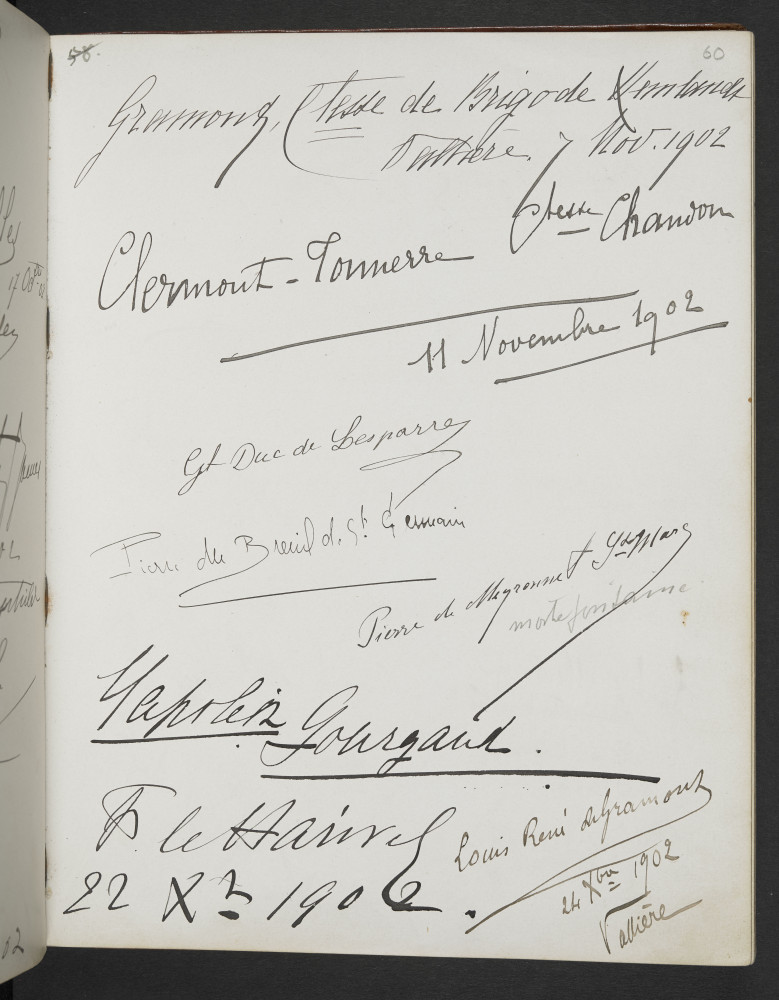 58.
60
Gramond, Ctesse de Brigode Kemlandt
Vallière. 7 Nov. 1902
Ctesse Chandon
Clermont-Tonnerre
11 Novembre 1902
Gt Duc de Lesparre
Pierre du Breuil d. St Germain
Pierre de Meyronnet St Marc
mortefontaine
Napoléon
Gourgaud.
le Hairvel
22 Xb 1902.
Louis René de Gramont
24 Xbre 1902
Vallière